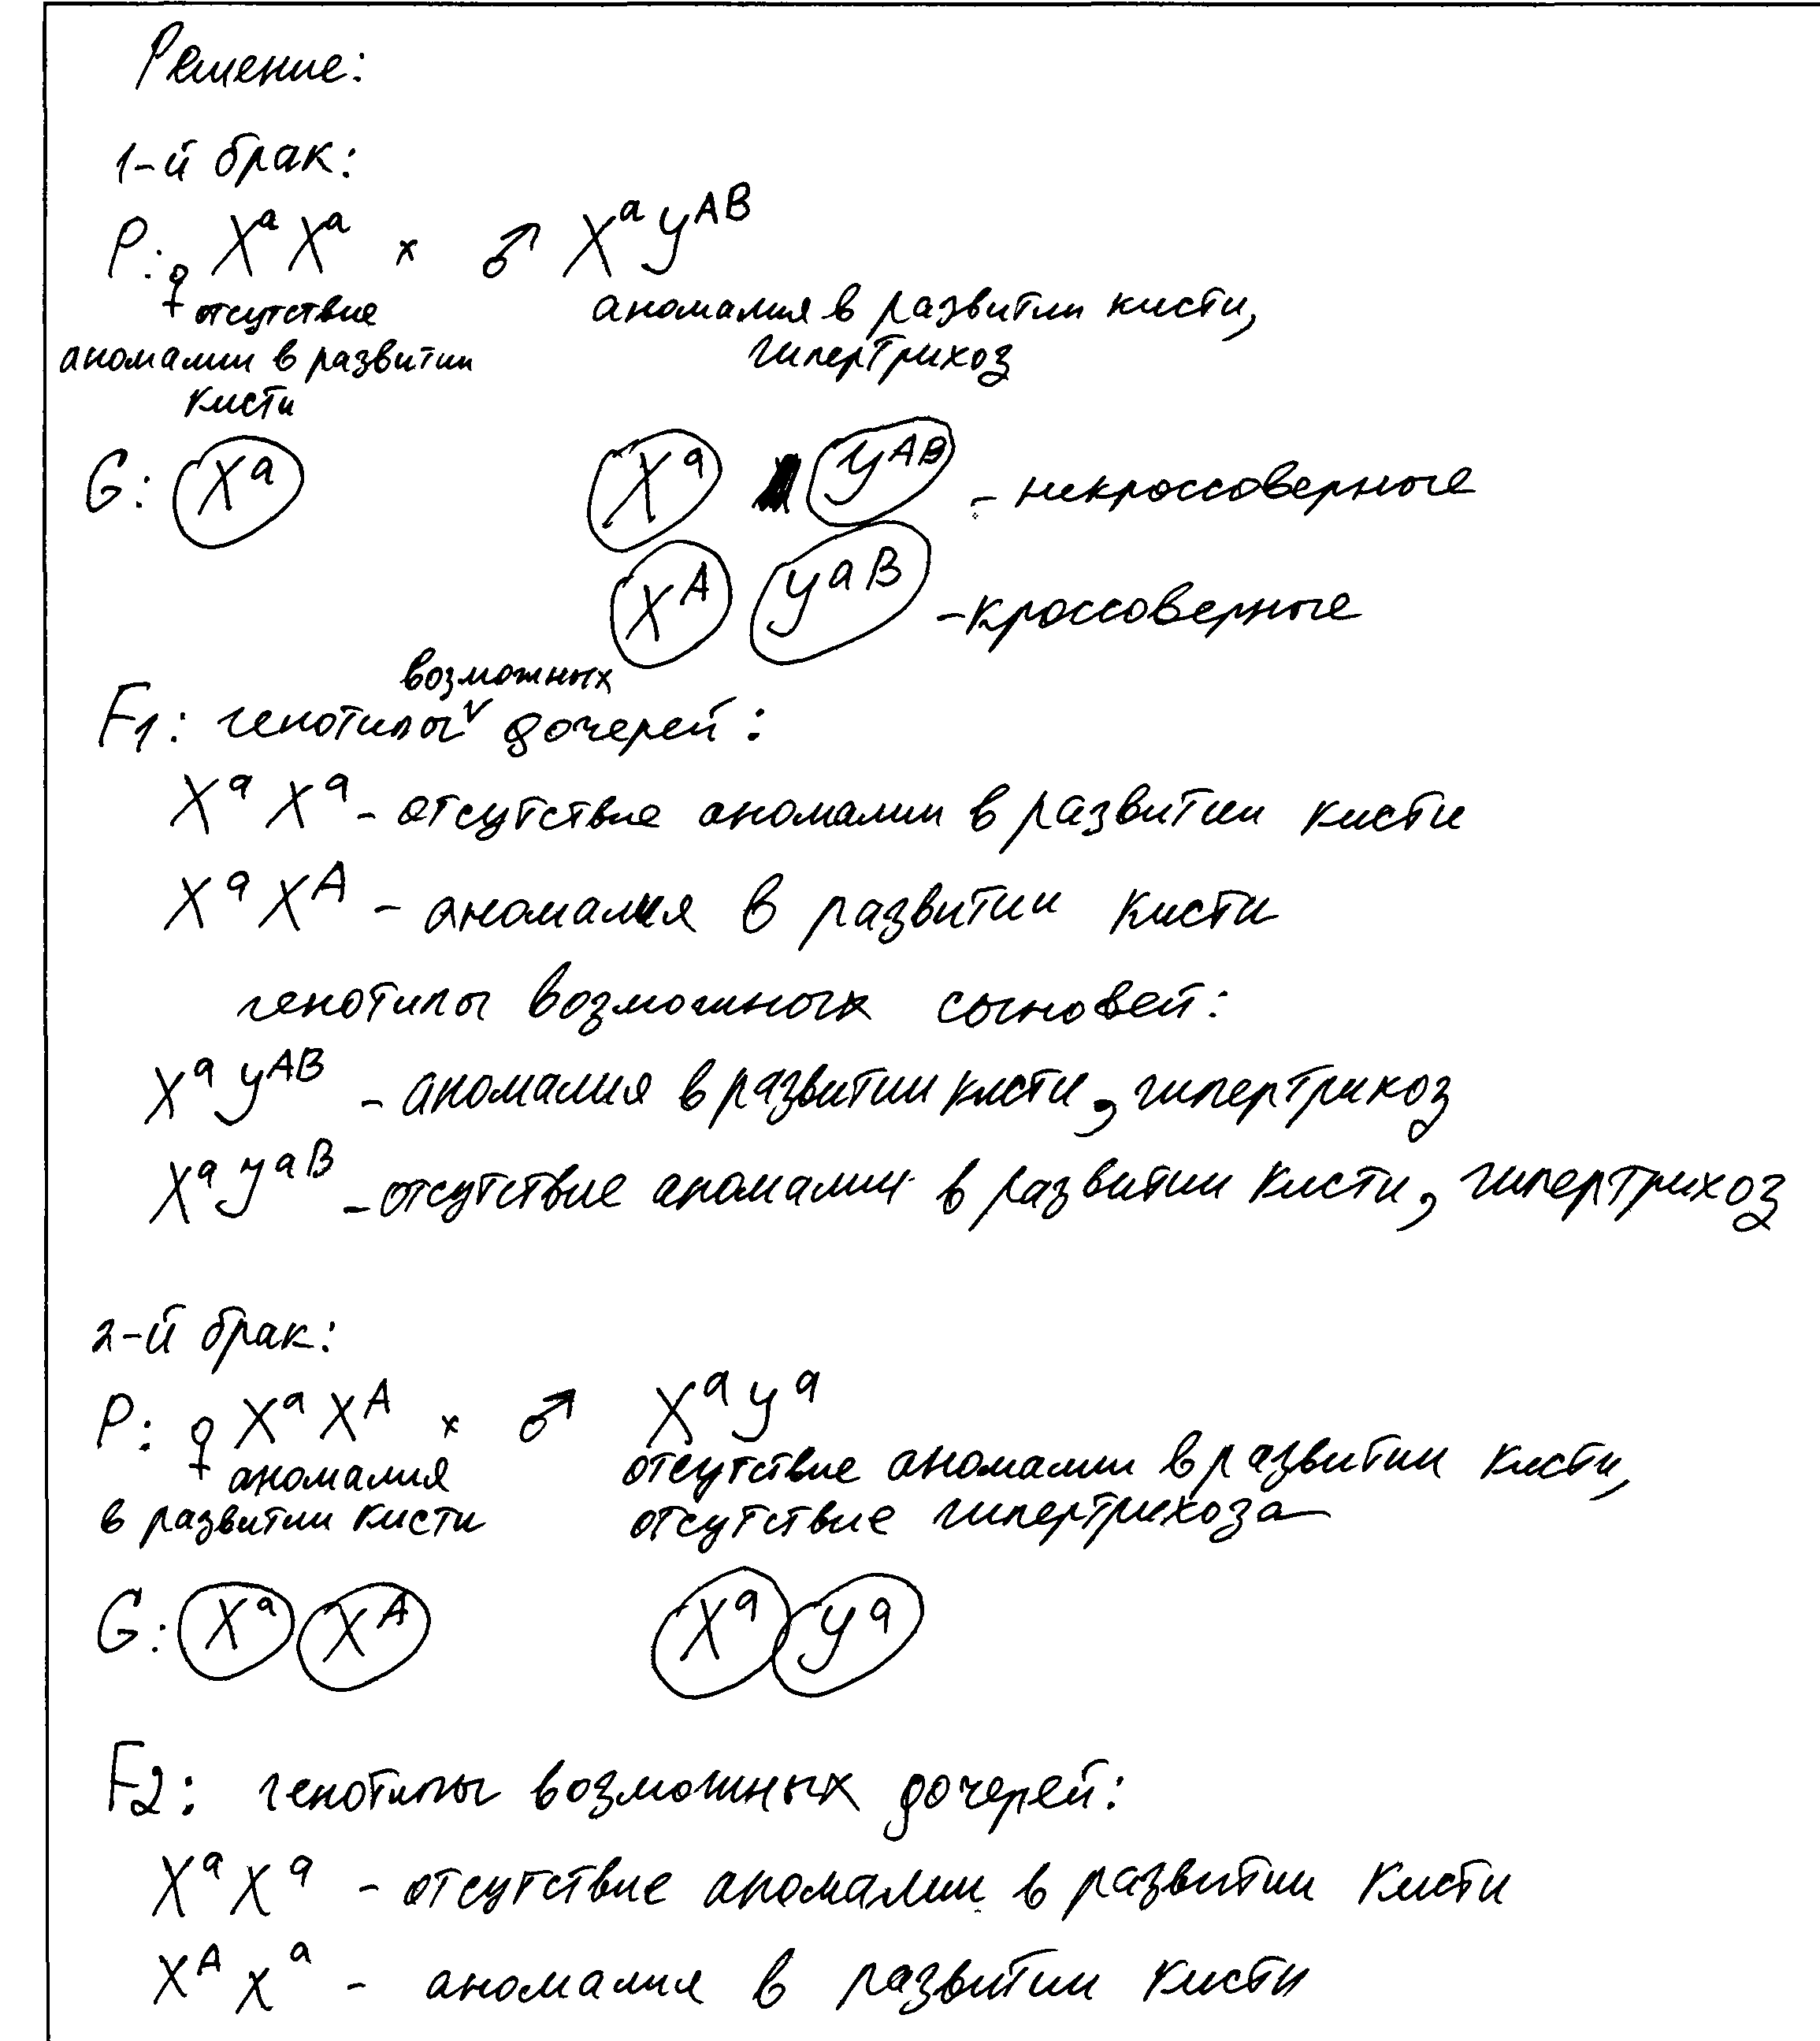 Решение:
1-й брак:
P: ♀ XᵃXᵃ × ♂ XᵃYᴬᴮ
отсутствие аномалия в развитии кисти,
аномалии в развитии гипертрихоз
кисти
G: Xᵃ Xᵃ Yᴬᴮ - некроссоверные
Xᴬ YᵃB - кроссоверные
возможных
F1: генотипы ⱽ дочерей:
XᵃXᵃ - отсутствие аномалии в развитии кисти
XᵃXᴬ - аномалия в развитии кисти
генотипы возможных сыновей:
XᵃYᴬᴮ - аномалия в развитии кисти, гипертрихоз
XᵃYᵃᴮ - отсутствие аномалии в развитии кисти, гипертрихоз
2-й брак:
P: ♀ XᵃXᴬ × ♂ XᵃYᵃ
аномалия отсутствие аномалии в развитии кисти,
в развитии кисти отсутствие гипертрихоза
G: Xᵃ Xᴬ Xᵃ Yᵃ
F2: генотипы возможных дочерей:
XᵃXᵃ - отсутствие аномалии в развитии кисти
XᴬXᵃ - аномалия в развитии кисти